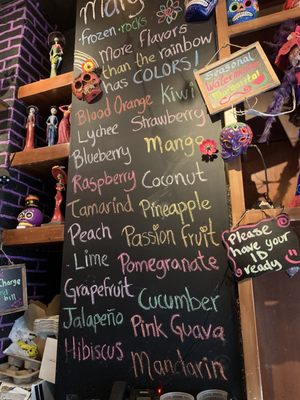 Marg
-frozen -rocks
More Flavors
than the rainbow
has COLORS!
Blood Orange Kiwi
Lychee Strawberry
Blueberry Mango
Raspberry Coconut
Tamarind Pineapple
Peach Passion fruit
Lime Pomegranate
Grapefruit Cucumber
Jalapeño Pink Guava
Hibiscus Mandarin
Seasonal
Watermelon
Please
have your
ID
ready
Charge
bill